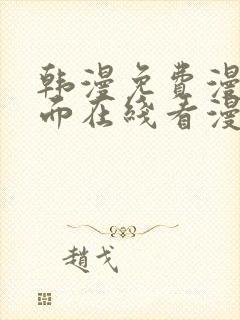 韩漫免费漫
而在线看漫
赵戈